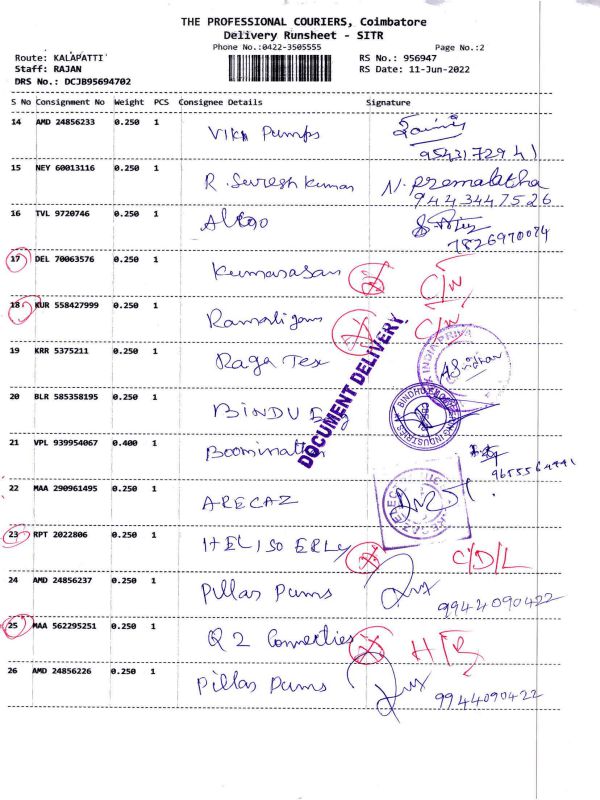 THE PROFESSIONAL COURIERS, Coimbatore
Delivery Runsheet - SITR
Phone No.:0422-3505555 Page No.:2
Route: KALAPATTI RS No.: 956947
Staff: RAJAN RS Date: 11-Jun-2022
DRS No.: DCJB95694702
S No Consignment No Weight PCS Consignee Details Signature
14 AMD 24856233 0.250 1 Vikn Pumps
9543172941
15 NEY 60013116 0.250 1 R. Sureshkumar N. Premalatha
9443447526
16 TVL 9720746 0.250 1
7826970074
17 DEL 70063576 0.250 1 Kumarasan C/n
18 KUR 558427999 0.250 1 C/n
19 KRR 5375211 0.250 1 Raga Tex
DOCUMENT DELIVERY
20 BLR 585358195 0.250 1 BINDU
21 VPL 939954067 0.400 1 Boominathan
22 MAA 290961495 0.250 1 ARECAZ
23 RPT 2022806 0.250 1 C/D/L
24 AMD 24856237 0.250 1 Pillar Pums
9944090422
25 MAA 562295251 0.250 1 Q 2 Connecties
26 AMD 24856226 0.250 1 Pillar Pums
9944090422